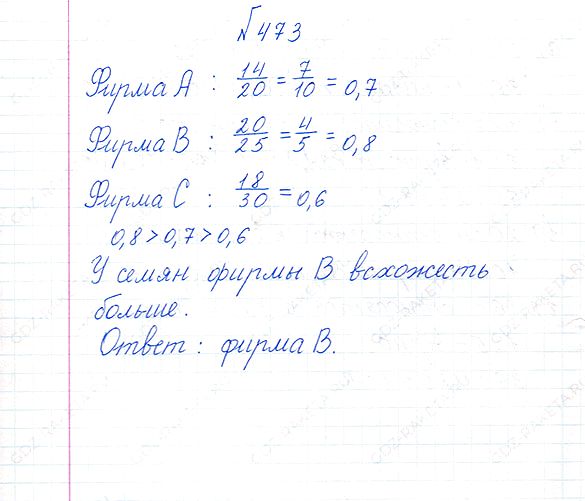 №473
Фирма А : 14/20 = 7/10 = 0,7
Фирма В : 20/25 = 4/5 = 0,8
Фирма С : 18/30 = 0,6
0,8 > 0,7 > 0,6
У семян фирмы В всхожесть
больше.
Ответ : фирма В.